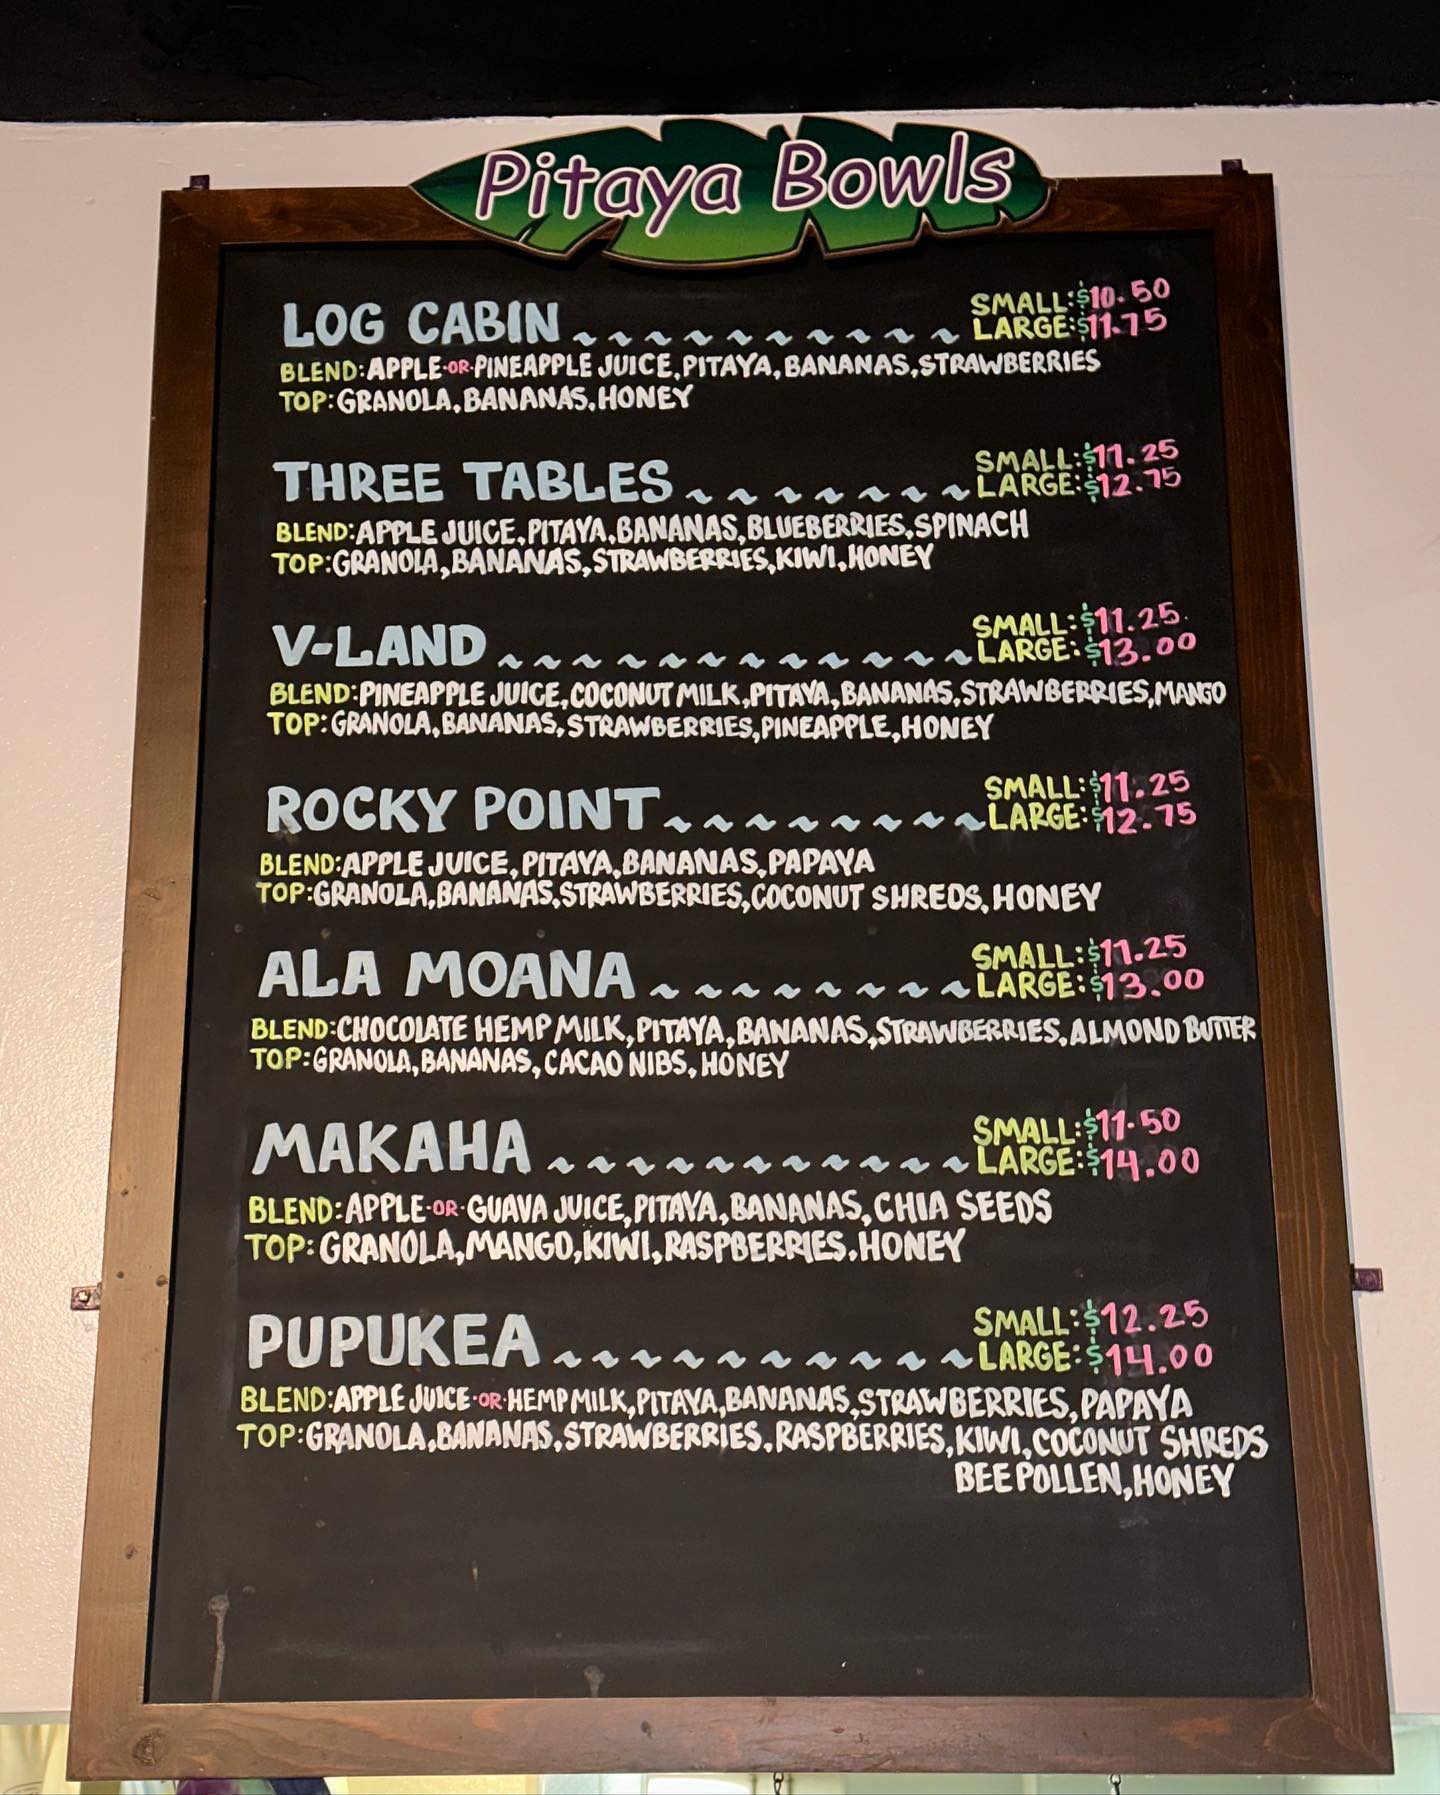 Pitaya Bowls
LOG CABIN ~~~~~~~~~~ SMALL: $10.50
LARGE: $11.75
BLEND: APPLE ·OR· PINEAPPLE JUICE, PITAYA, BANANAS, STRAWBERRIES
TOP: GRANOLA, BANANAS, HONEY
THREE TABLES ~~~~~~~ SMALL: $11.25
LARGE: $12.75
BLEND: APPLE JUICE, PITAYA, BANANAS, BLUEBERRIES, SPINACH
TOP: GRANOLA, BANANAS, STRAWBERRIES, KIWI, HONEY
V-LAND ~~~~~~~~~~~~ SMALL: $11.25
LARGE: $13.00
BLEND: PINEAPPLE JUICE, COCONUT MILK, PITAYA, BANANAS, STRAWBERRIES, MANGO
TOP: GRANOLA, BANANAS, STRAWBERRIES, PINEAPPLE, HONEY
ROCKY POINT ~~~~~~~~ SMALL: $11.25
LARGE: $12.75
BLEND: APPLE JUICE, PITAYA, BANANAS, PAPAYA
TOP: GRANOLA, BANANAS, STRAWBERRIES, COCONUT SHREDS, HONEY
ALA MOANA ~~~~~~~~ SMALL: $11.25
LARGE: $13.00
BLEND: CHOCOLATE HEMP MILK, PITAYA, BANANAS, STRAWBERRIES, ALMOND BUTTER
TOP: GRANOLA, BANANAS, CACAO NIBS, HONEY
MAKAHA ~~~~~~~~~~~ SMALL: $11.50
LARGE: $14.00
BLEND: APPLE ·OR· GUAVA JUICE, PITAYA, BANANAS, CHIA SEEDS
TOP: GRANOLA, MANGO, KIWI, RASPBERRIES, HONEY
PUPUKEA ~~~~~~~~~~~ SMALL: $12.25
LARGE: $14.00
BLEND: APPLE JUICE ·OR· HEMP MILK, PITAYA, BANANAS, STRAWBERRIES, PAPAYA
TOP: GRANOLA, BANANAS, STRAWBERRIES, RASPBERRIES, KIWI, COCONUT SHREDS
BEE POLLEN, HONEY